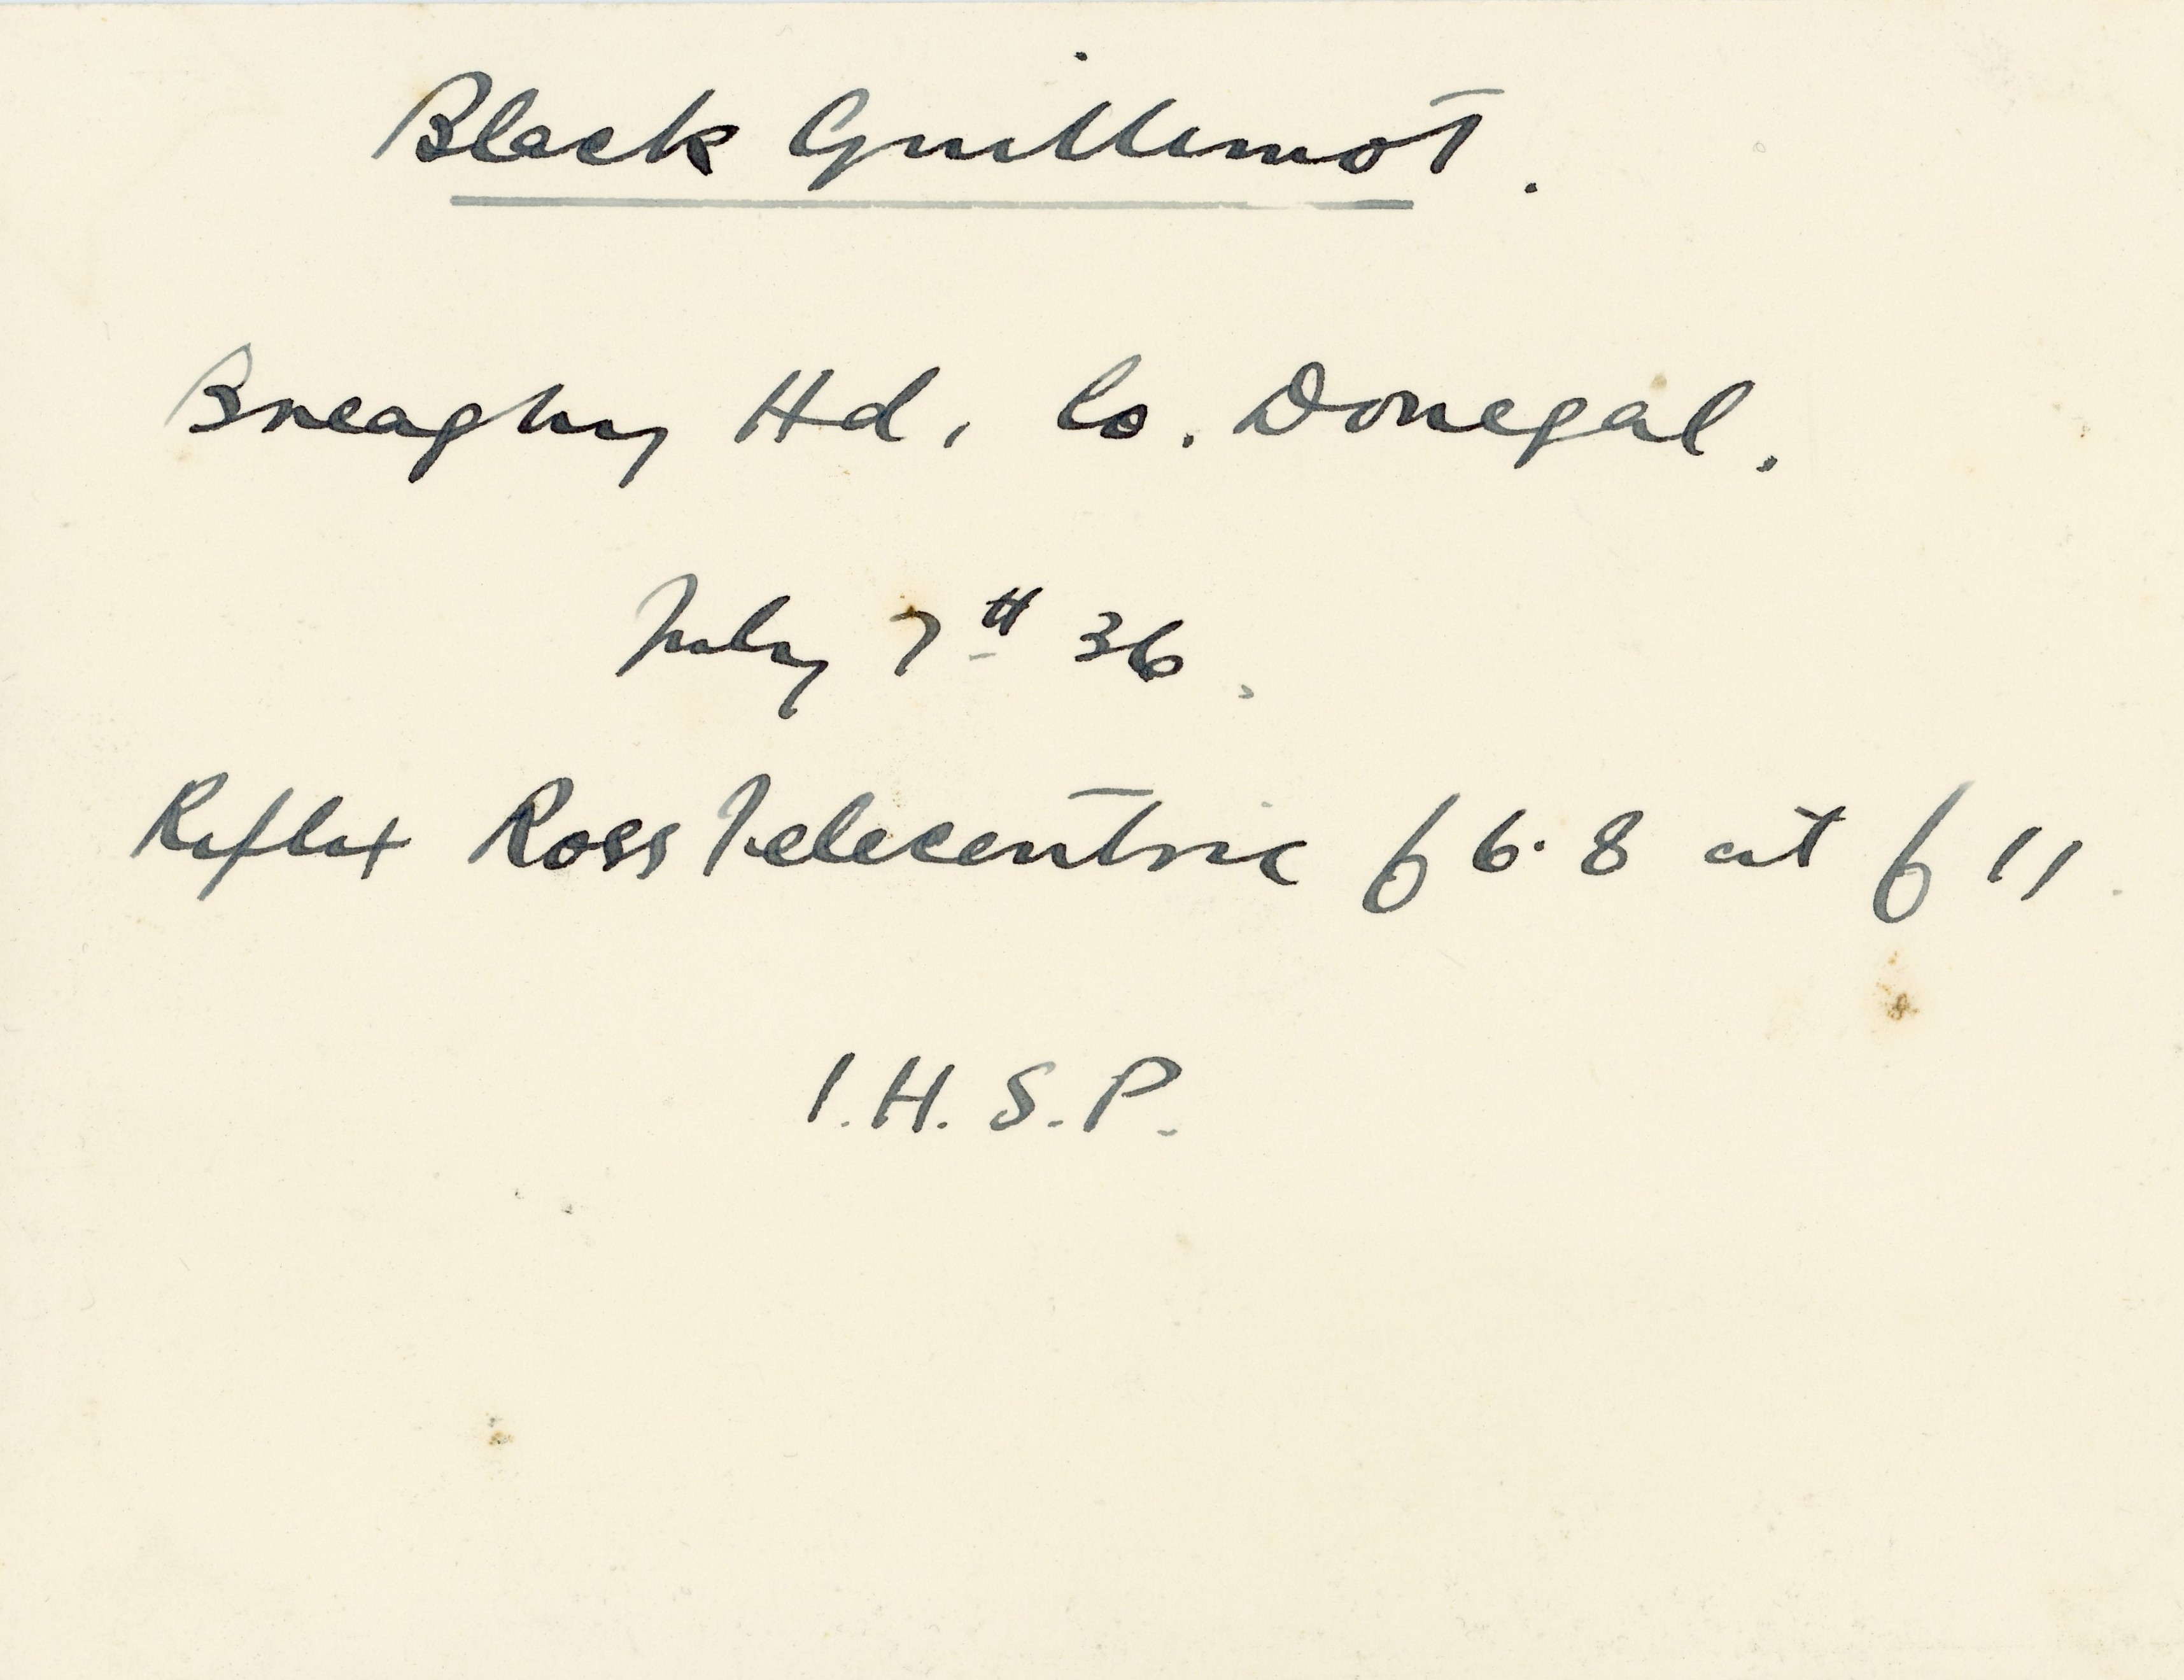 Black Guillemot.
Breaghy Hd. Co. Donegal.
July 7th 36.
Reflex Ross Telecentric f 6.8 at f 11.
I.H.S.P.